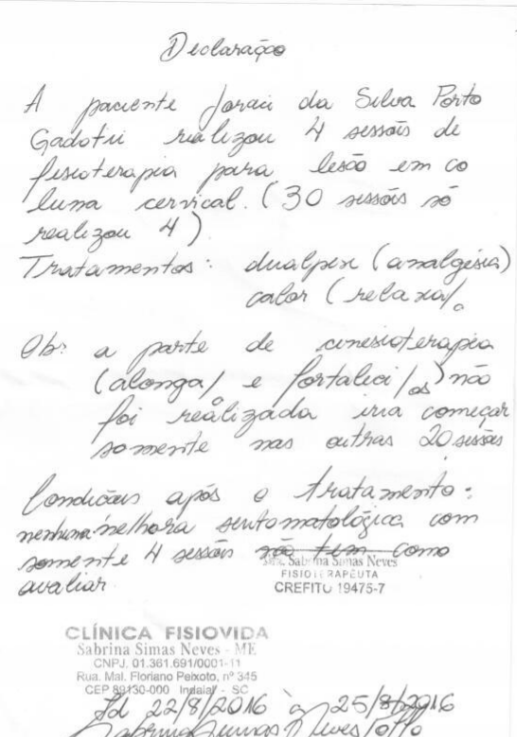 Declaração
A paciente Joraci da Silva Porto
Gadotti realizou 4 sessões de
fisioterapia para lesão em co
luna cervical. (30 sessões só
realizou 4)
Tratamentos: dualpex (analgésia)
calor (relaxa/o
Ob: a parte de cinesioterapia
(alonga/ e fortaleci/os) não
foi realizada iria começar
somente nas outras 20 sessões
Condicões após o tratamento:
nenhuma melhora sintomatológica com
somente 4 sessões não tem como
avaliar
Sabrina Simas Neves
FISIOTERAPEUTA
CREFITO 19475-7
CLÍNICA FISIOVIDA
Sabrina Simas Neves - ME
CNPJ. 01.361.691/0001-11
Rua. Mal. Floriano Peixoto, nº 345
CEP 89130-000 Indaial - SC
22/8/2016 à 25/8/2016
Sabrina Simas Neves